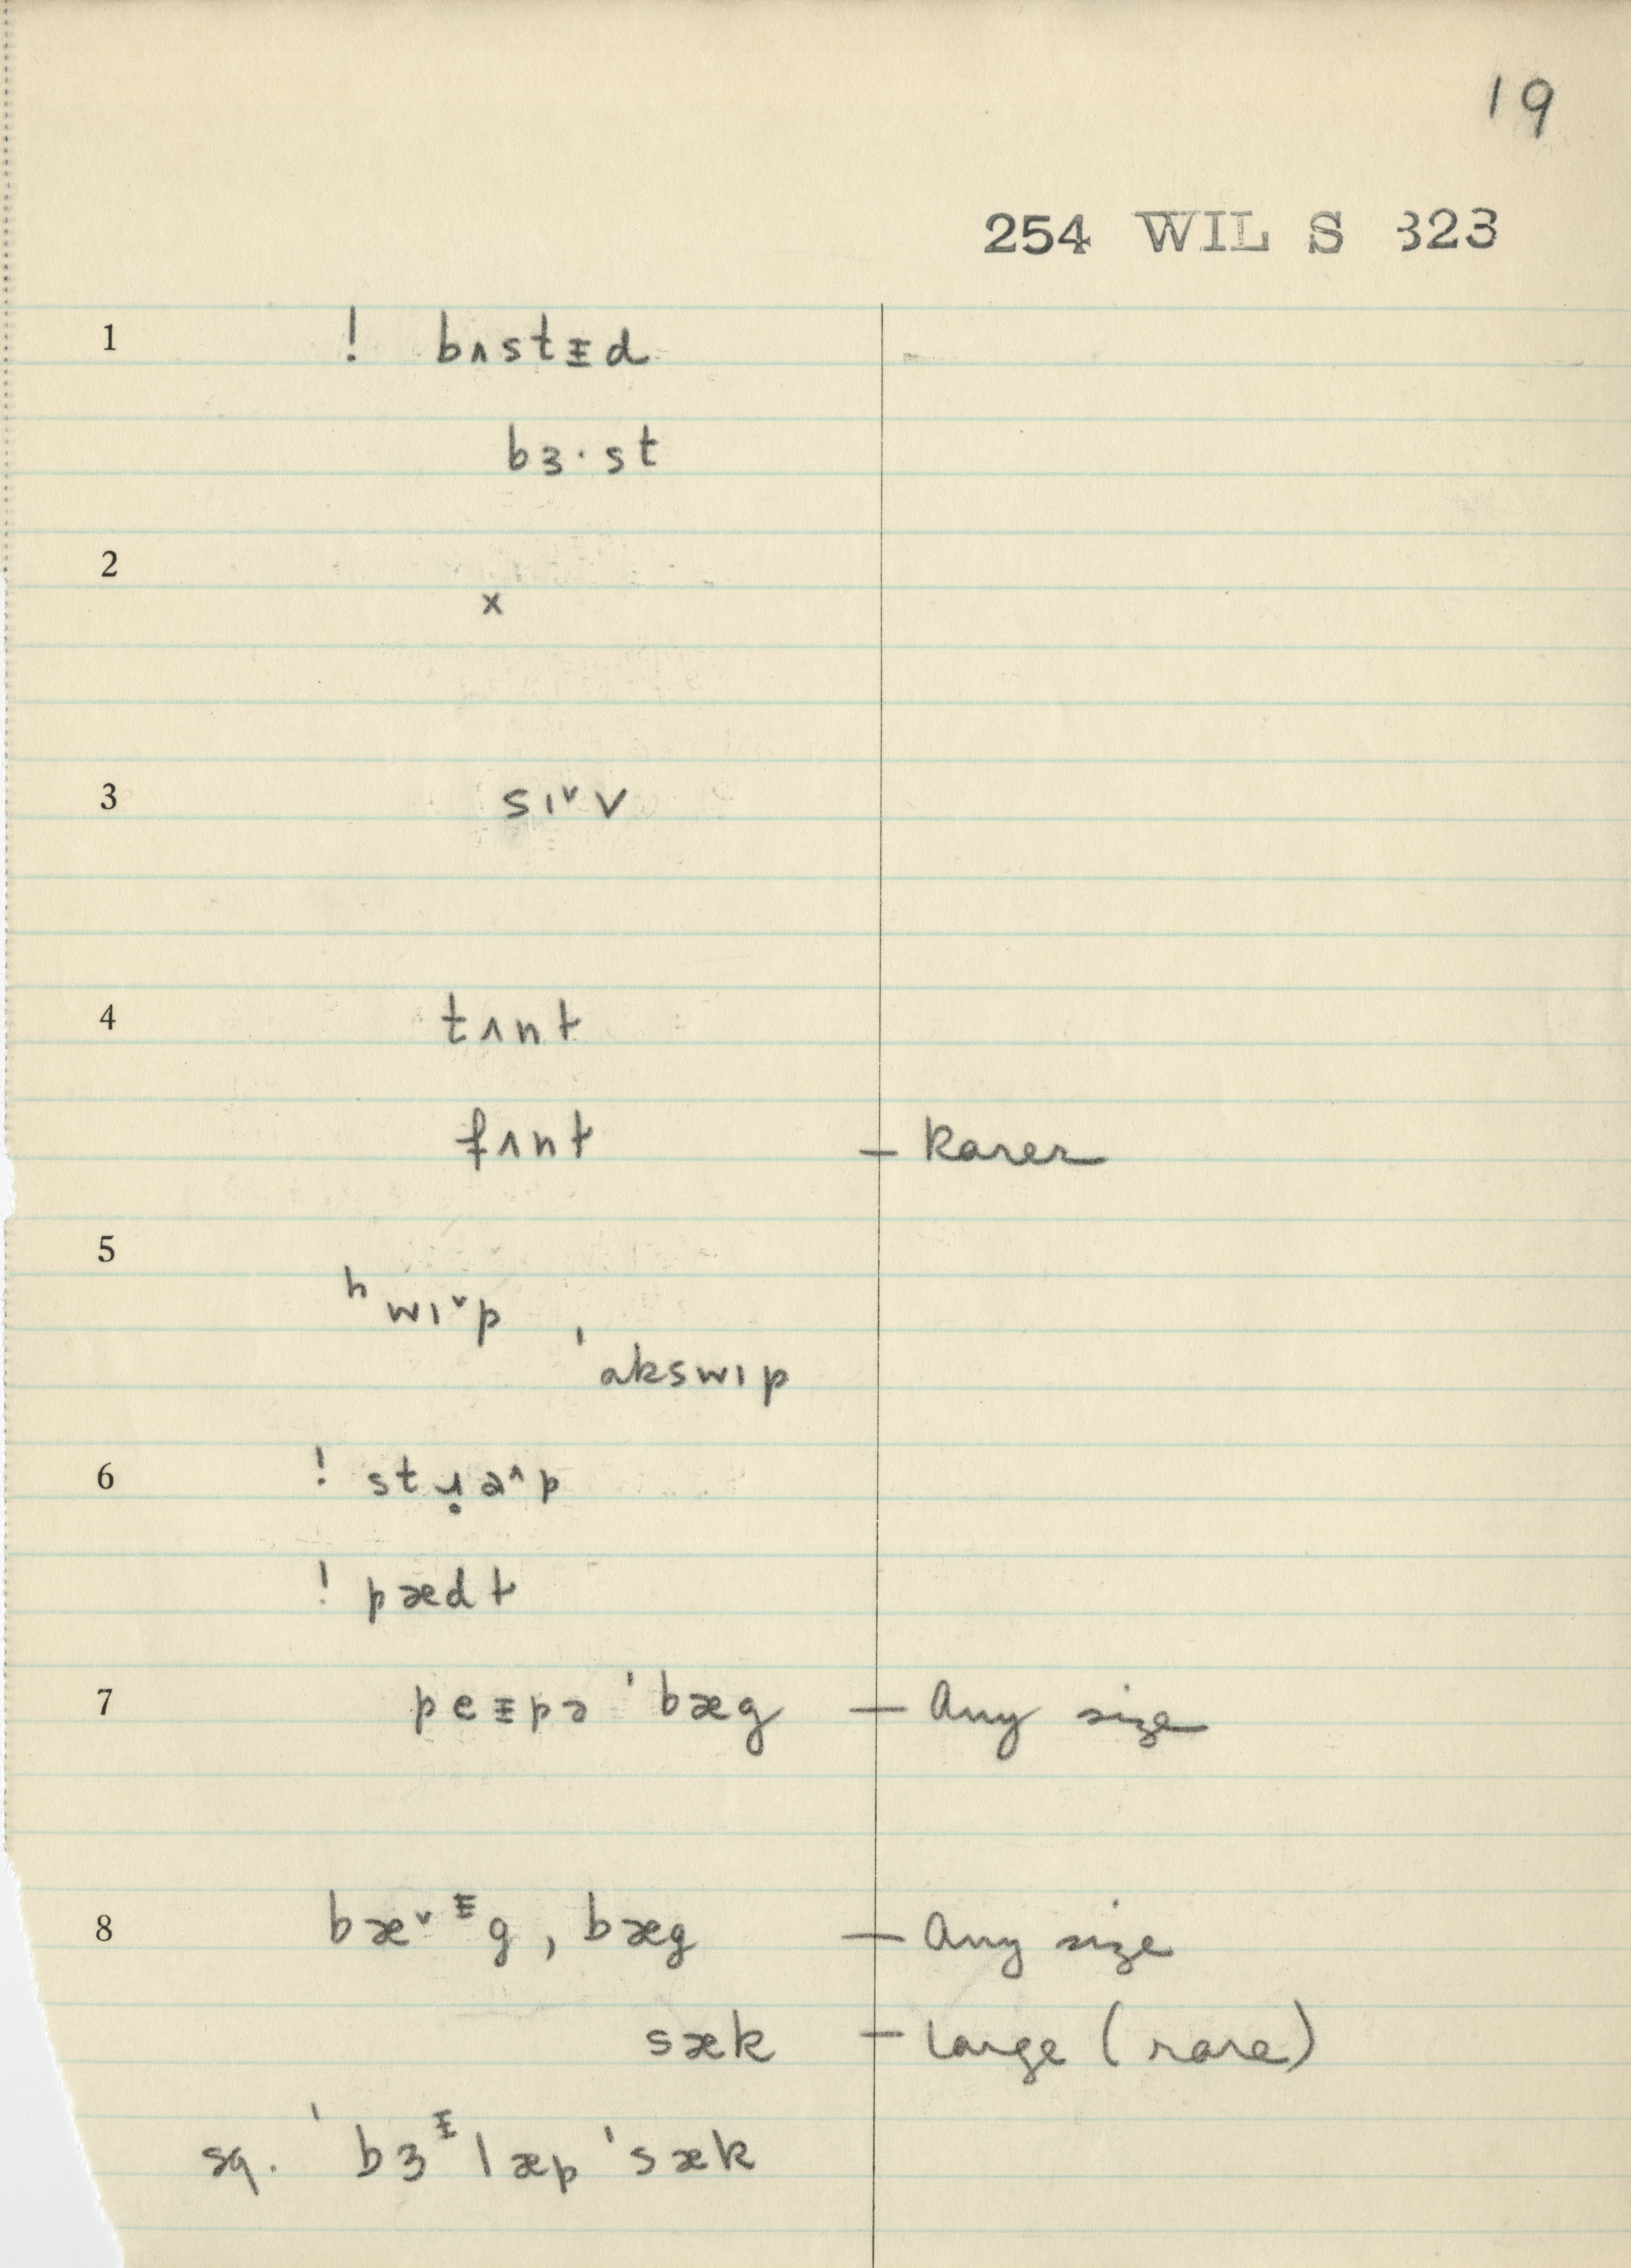 19
254 WIL S 323
1 ! bʌstᵻd
bɜ·st
2
x
3 sɪ˅v
4 tʌnt
fʌnt – Rarer
5
ʰwɪ˅p
ˈakswɪp
6 ! stɹ̣a˄p
! pædt
7 peᵻpə ˈbæg – Any size
8 bæ˅ᵻg, bæg – Any size
sæk – large (rare)
sq. ˈbɜᵻlæpˈsæk